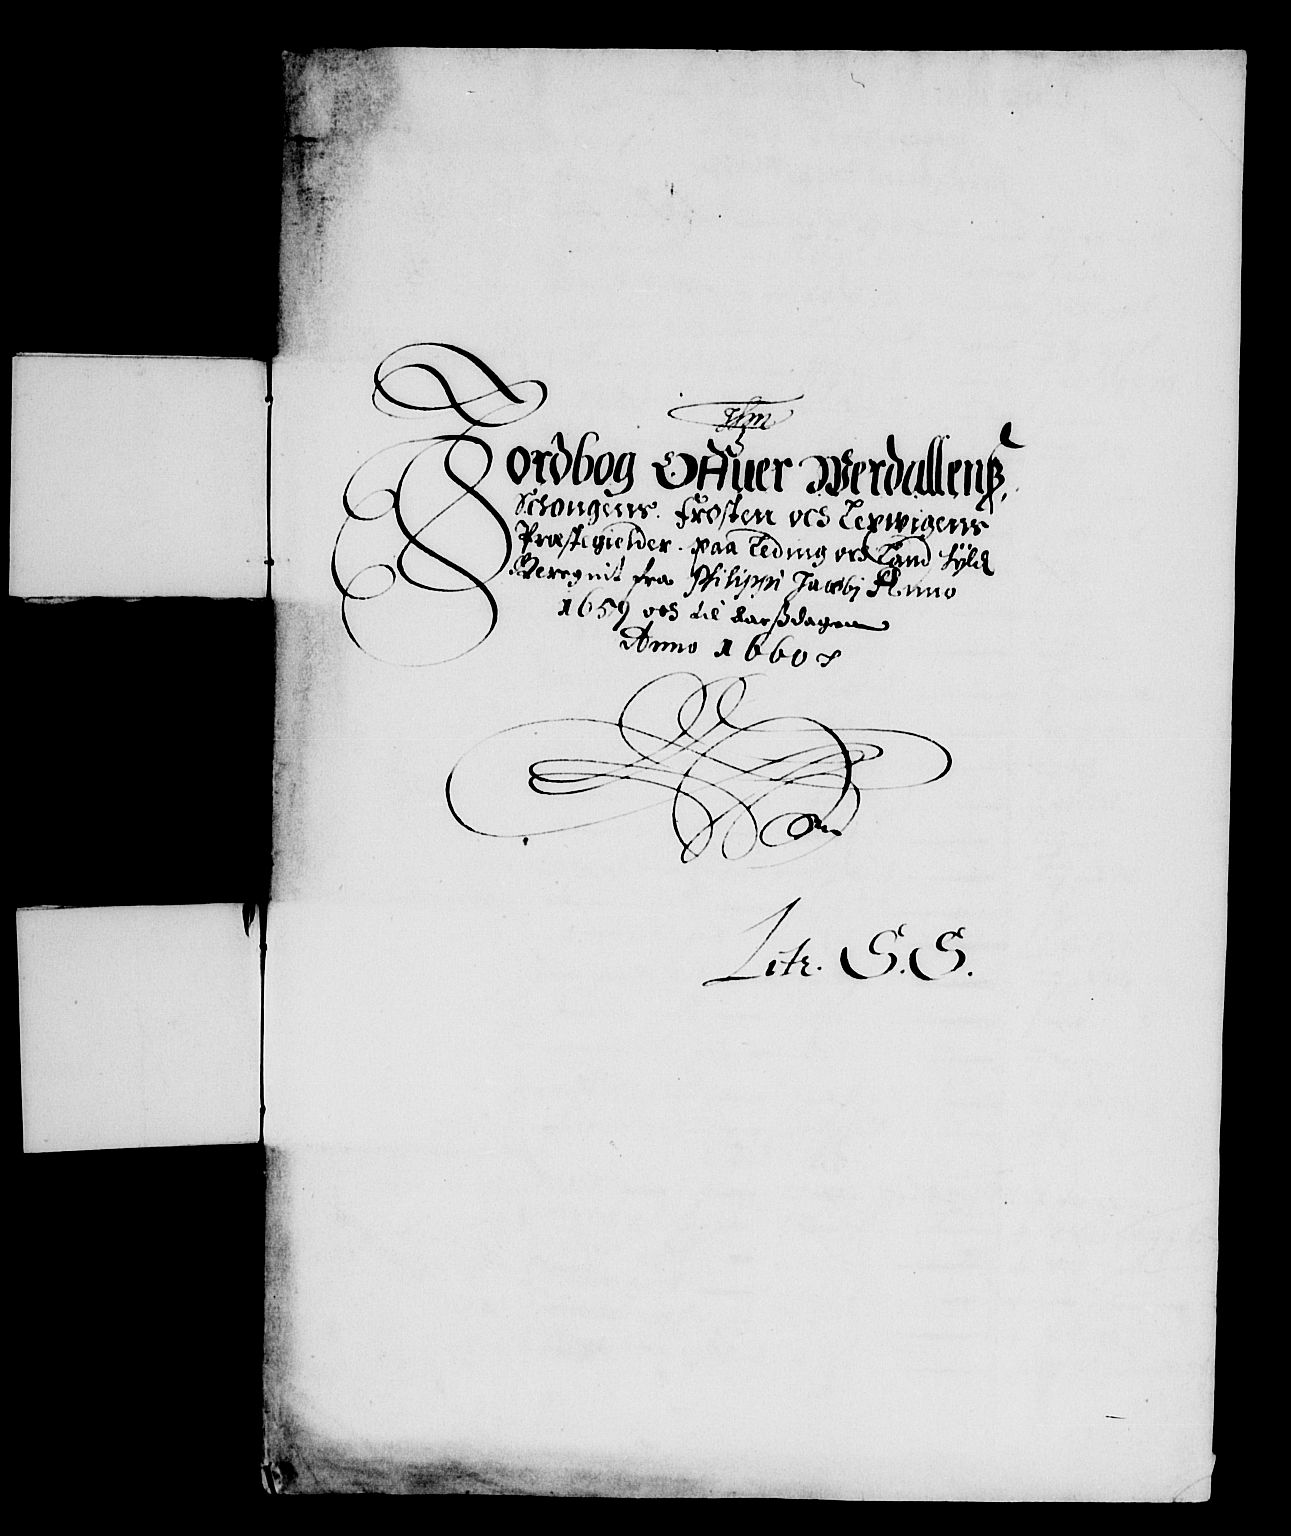 Jordbog Offuer Werdallens,
Schougens. Frosten och Lexwigens
Præstegielder. paa Leding och Land skyld
Beregnit fra Philippi Jacobj Anno
1659 och til Aarsdagen
Anno 1660
Litr. S.S.